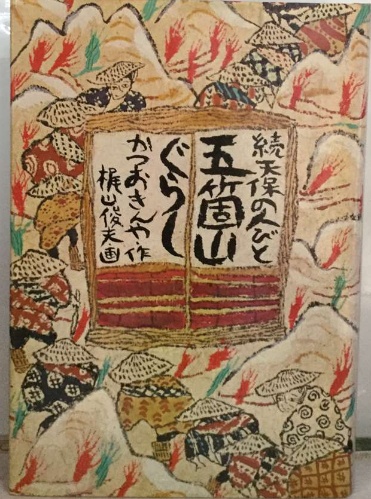 続天保の人びと
五箇山
ぐらし
かつおきんや・作
梶山俊夫・画